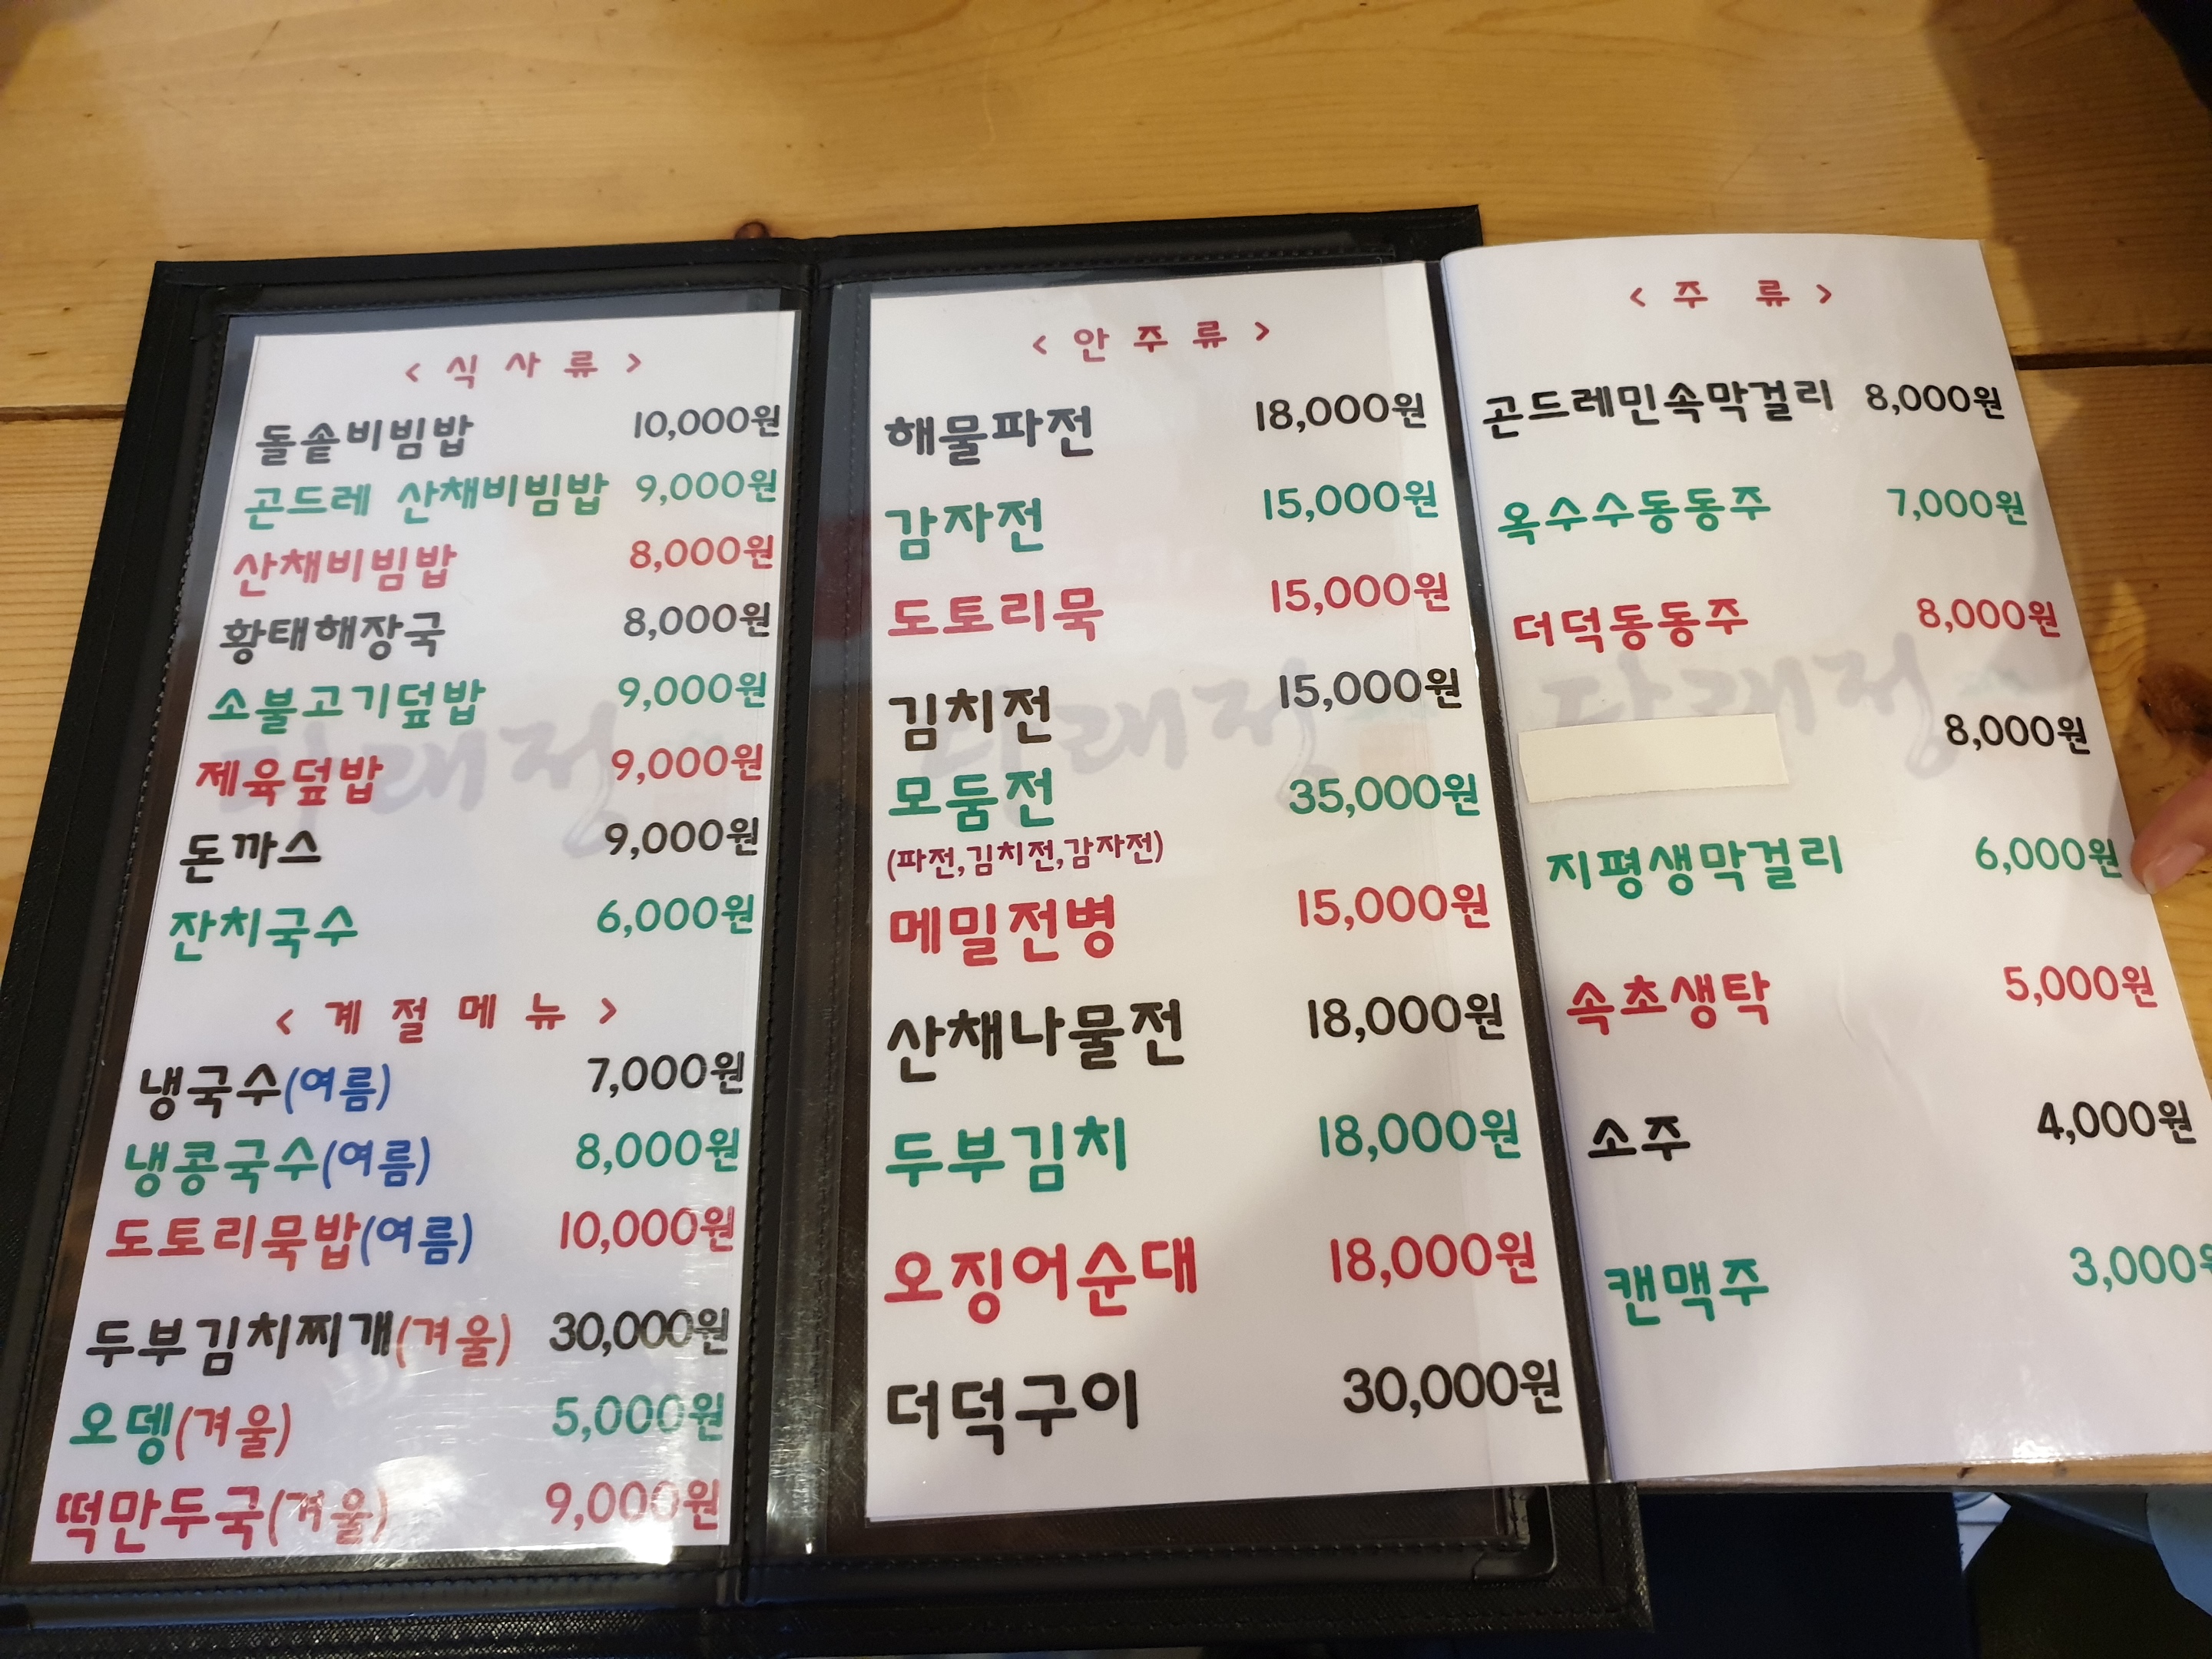 < 식 사 류 >
돌솥비빔밥 10,000원
곤드레 산채비빔밥 9,000원
산채비빔밥 8,000원
황태해장국 8,000원
소불고기덮밥 9,000원
제육덮밥 9,000원
돈까스 9,000원
잔치국수 6,000원
< 계 절 메 뉴 >
냉국수(여름) 7,000원
냉콩국수(여름) 8,000원
도토리묵밥(여름) 10,000원
두부김치찌개(겨울) 30,000원
오뎅(겨울) 5,000원
떡만두국(겨울) 9,000원
< 안 주 류 >
해물파전 18,000원
감자전 15,000원
도토리묵 15,000원
김치전 15,000원
모둠전 35,000원
(파전,김치전,감자전)
메밀전병 15,000원
산채나물전 18,000원
두부김치 18,000원
오징어순대 18,000원
더덕구이 30,000원
< 주 류 >
곤드레민속막걸리 8,000원
옥수수동동주 7,000원
더덕동동주 8,000원
8,000원
지평생막걸리 6,000원
속초생탁 5,000원
소주 4,000원
캔맥주 3,000